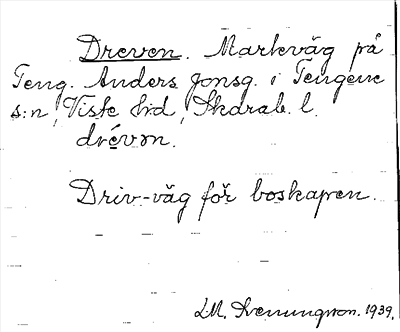 Dreven. Markväg på
Teng. Anders Jonsg. i Tengene
s:n, Viste hd, Skarab. l.
drévɷn.
Driv-väg för boskapen.
I.M. Svenungsson. 1939.